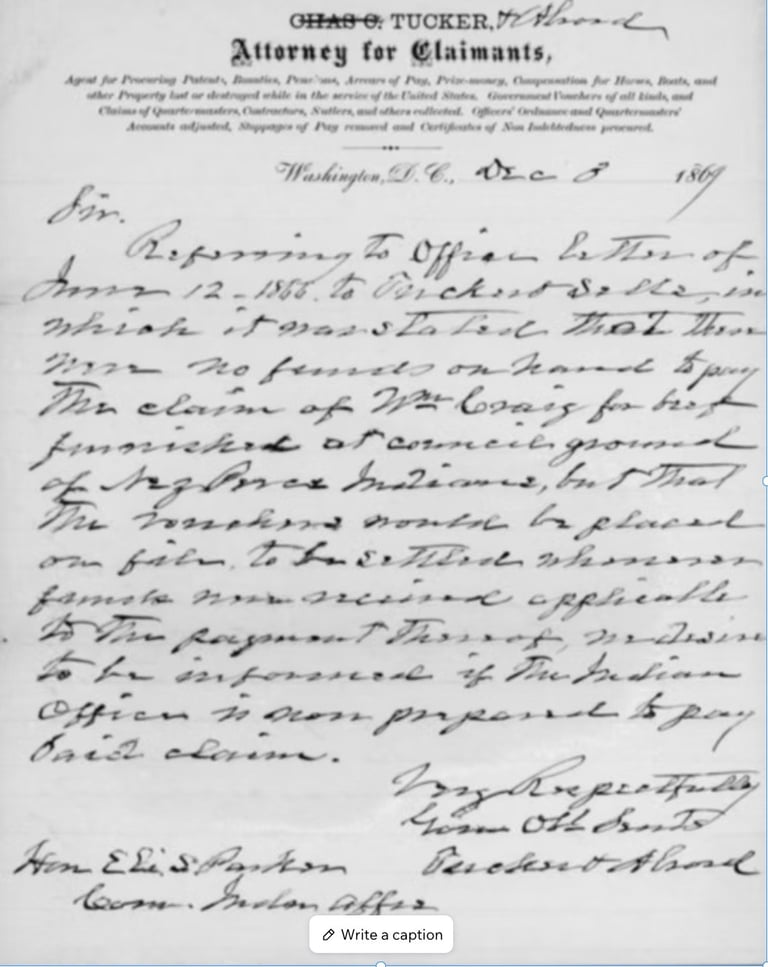 CHAS C. TUCKER, & Abrood
Attorney for Claimants,
Agent for Procuring Patents, Bounties, Pensions, Arrears of Pay, Prize-money, Compensation for Horses, Boats, and
other Property lost or destroyed while in the service of the United States. Government Vouchers of all kinds, and
Claims of Quartermasters, Contractors, Sutlers, and others collected. Officers' Ordnance and Quartermasters'
Accounts adjusted, Stoppages of Pay removed and Certificates of Non Indebtedness procured.
Washington, D. C., Dec 3 1869
Sir.
Referring to Office letter of
June 12 - 1866. to Tucker & Sells, in
which it was stated that there
were no funds on hand to pay
the claim of Wm Craig for beef
furnished at council ground
of Nez Perce Indians, but that
the vouchers would be placed
on file, to be settled whenever
funds were received applicable
to the payment thereof, we desire
to be informed if the Indian
Office is now prepared to pay
said claim.
Very Respectfully
Your Obt Servts
Hon Eli S. Parker Tucker &
Com. Indn Affrs
Write a caption